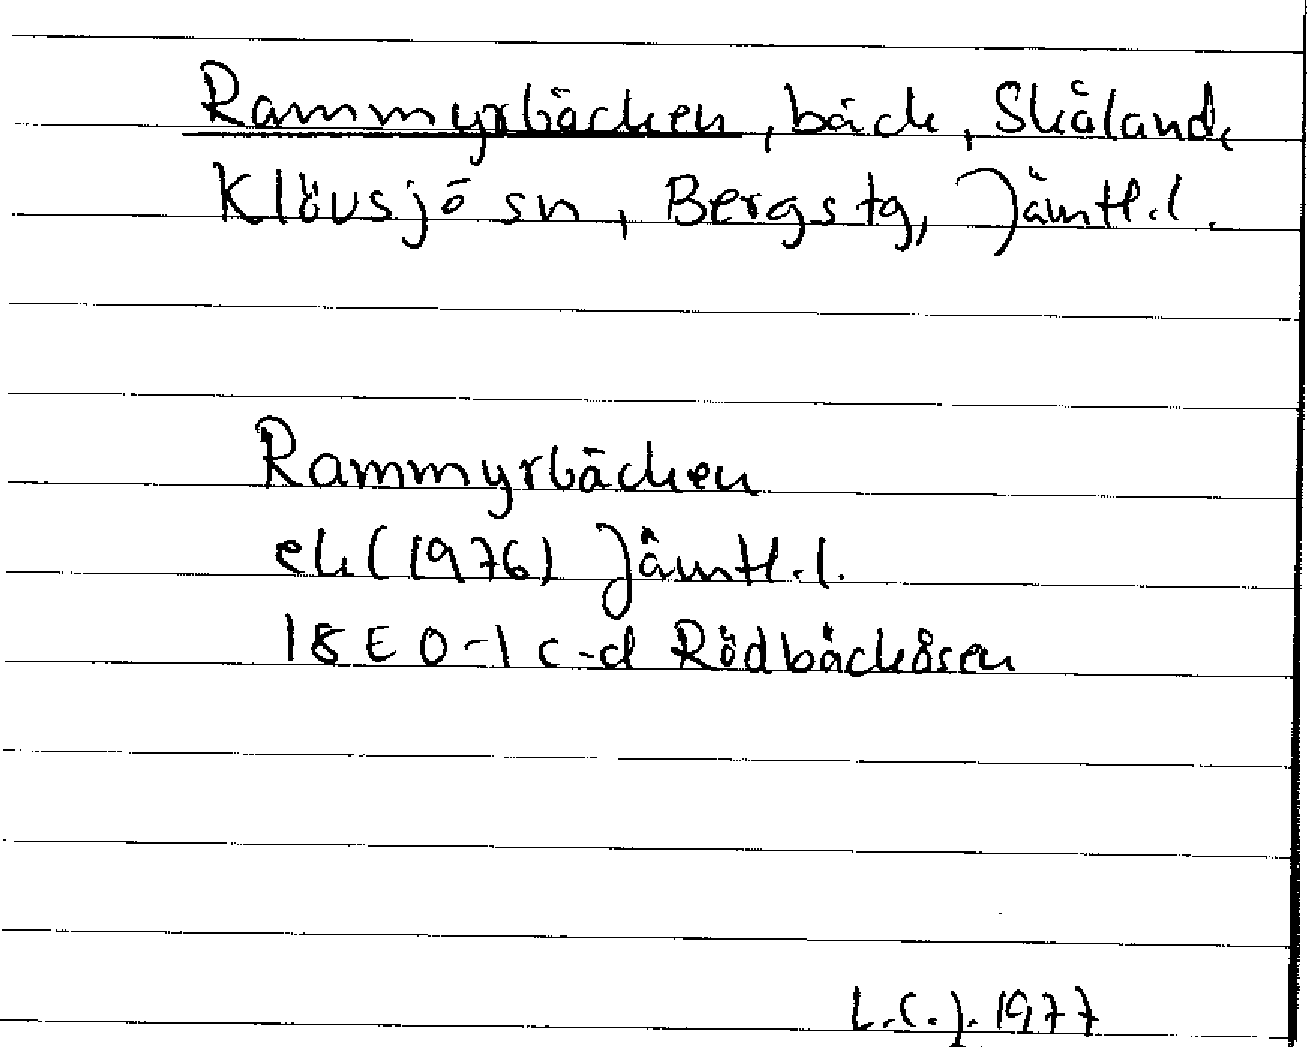 Rammyrbäcken, bäck, Skåland,
Klövsjö sn, Bergs tg, Jämtl.l.
Rammyrbäcken
ek (1976) Jämtl.l.
18 E 0-1 c-d Rödbäckåsen
L.C.J. 1977